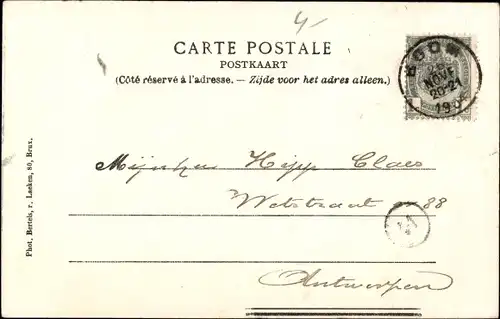 4-
CARTE POSTALE
POSTKAART
(Côté réservé à l'adresse. — Zijde voor het adres alleen.)
BOOM
NOVE
20-21
190
Mijnheer Hipp Claes
Wetstraat 88
Antwerpen
Phot. Bertels, r. Laeken, 80, Brux.